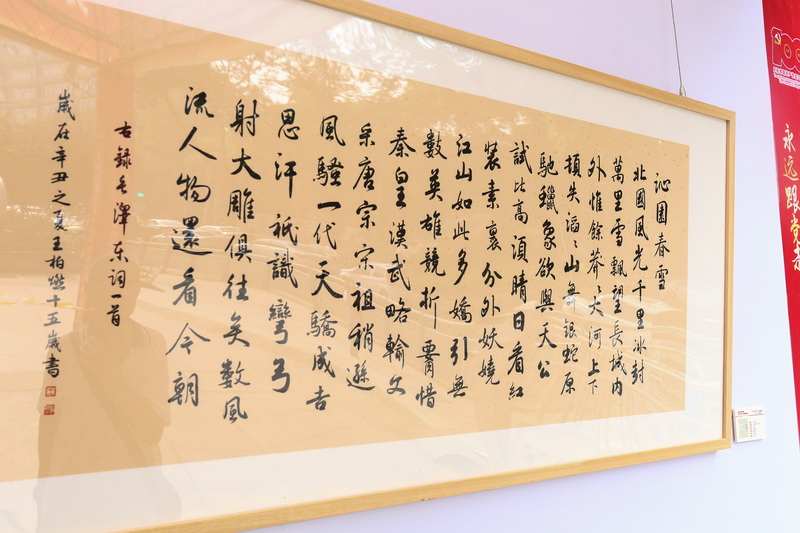 沁園春雪
北國風光千里冰封
萬里雪飄望長城內
外惟餘莽〻大河上下
頓失滔〻山舞銀蛇原
馳蠟象欲與天公
試比高須晴日看紅
裝素裹分外妖嬈
江山如此多嬌引無
數英雄競折腰惜
秦皇漢武略輸文
采唐宗宋祖稍遜
風騷一代天驕成吉
思汗祇識彎弓
射大雕俱往矣數風
流人物還看今朝
右錄毛澤东词一首
歲在辛丑之夏王柏燃十五歲書
100
永远跟党走